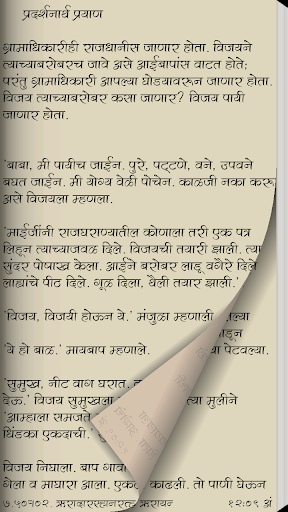 प्रदर्शनार्थ प्रयाण
ग्रामाधिकारीही राजधानीस जाणार होता. विजयने
त्याच्याबरोबरच जावे असे आईबापांस वाटत होते;
परंतु ग्रामाधिकारी आपल्या घोडयावरून जाणार होता.
विजय त्याच्याबरोबर कसा जाणार? विजय पायी
जाणार होता.
'बाबा, मी पायीच जाईन. पुरे, पट्टणे, वने, उपवने
बघत जाईन. मी योग्य वेळी पोचेन. काळजी नका करू
असे विजयला म्हणला.
'माईजींनी राजघराण्यातील कोणाला तरी एक पत्र
लिहून त्याच्याजवळ दिले. विजयची तयारी झाली. त्या
सुंदर पोषाख केला. आईने बरोबर लाडू वगैरे दिले
लाह्यांचे पीठ दिले. गूळ दिला, थैली तयार झाली.'
'विजय, विजयी होऊन ये.' मंजुळा म्हणाली.
'ये हो बाळ.' मायबाप म्हणाले.
पेटवल्या.
'सुमुख, नीट वाग घरात,
देऊ.' विजय सुमुखला
त्या मुलीने
'आम्हाला समजते
धिंडका एकदाची.'
विजय निघाला. बाप गावा
गेला व माघारा आला.
काढली. तो पाणी घेऊन
१२:०९